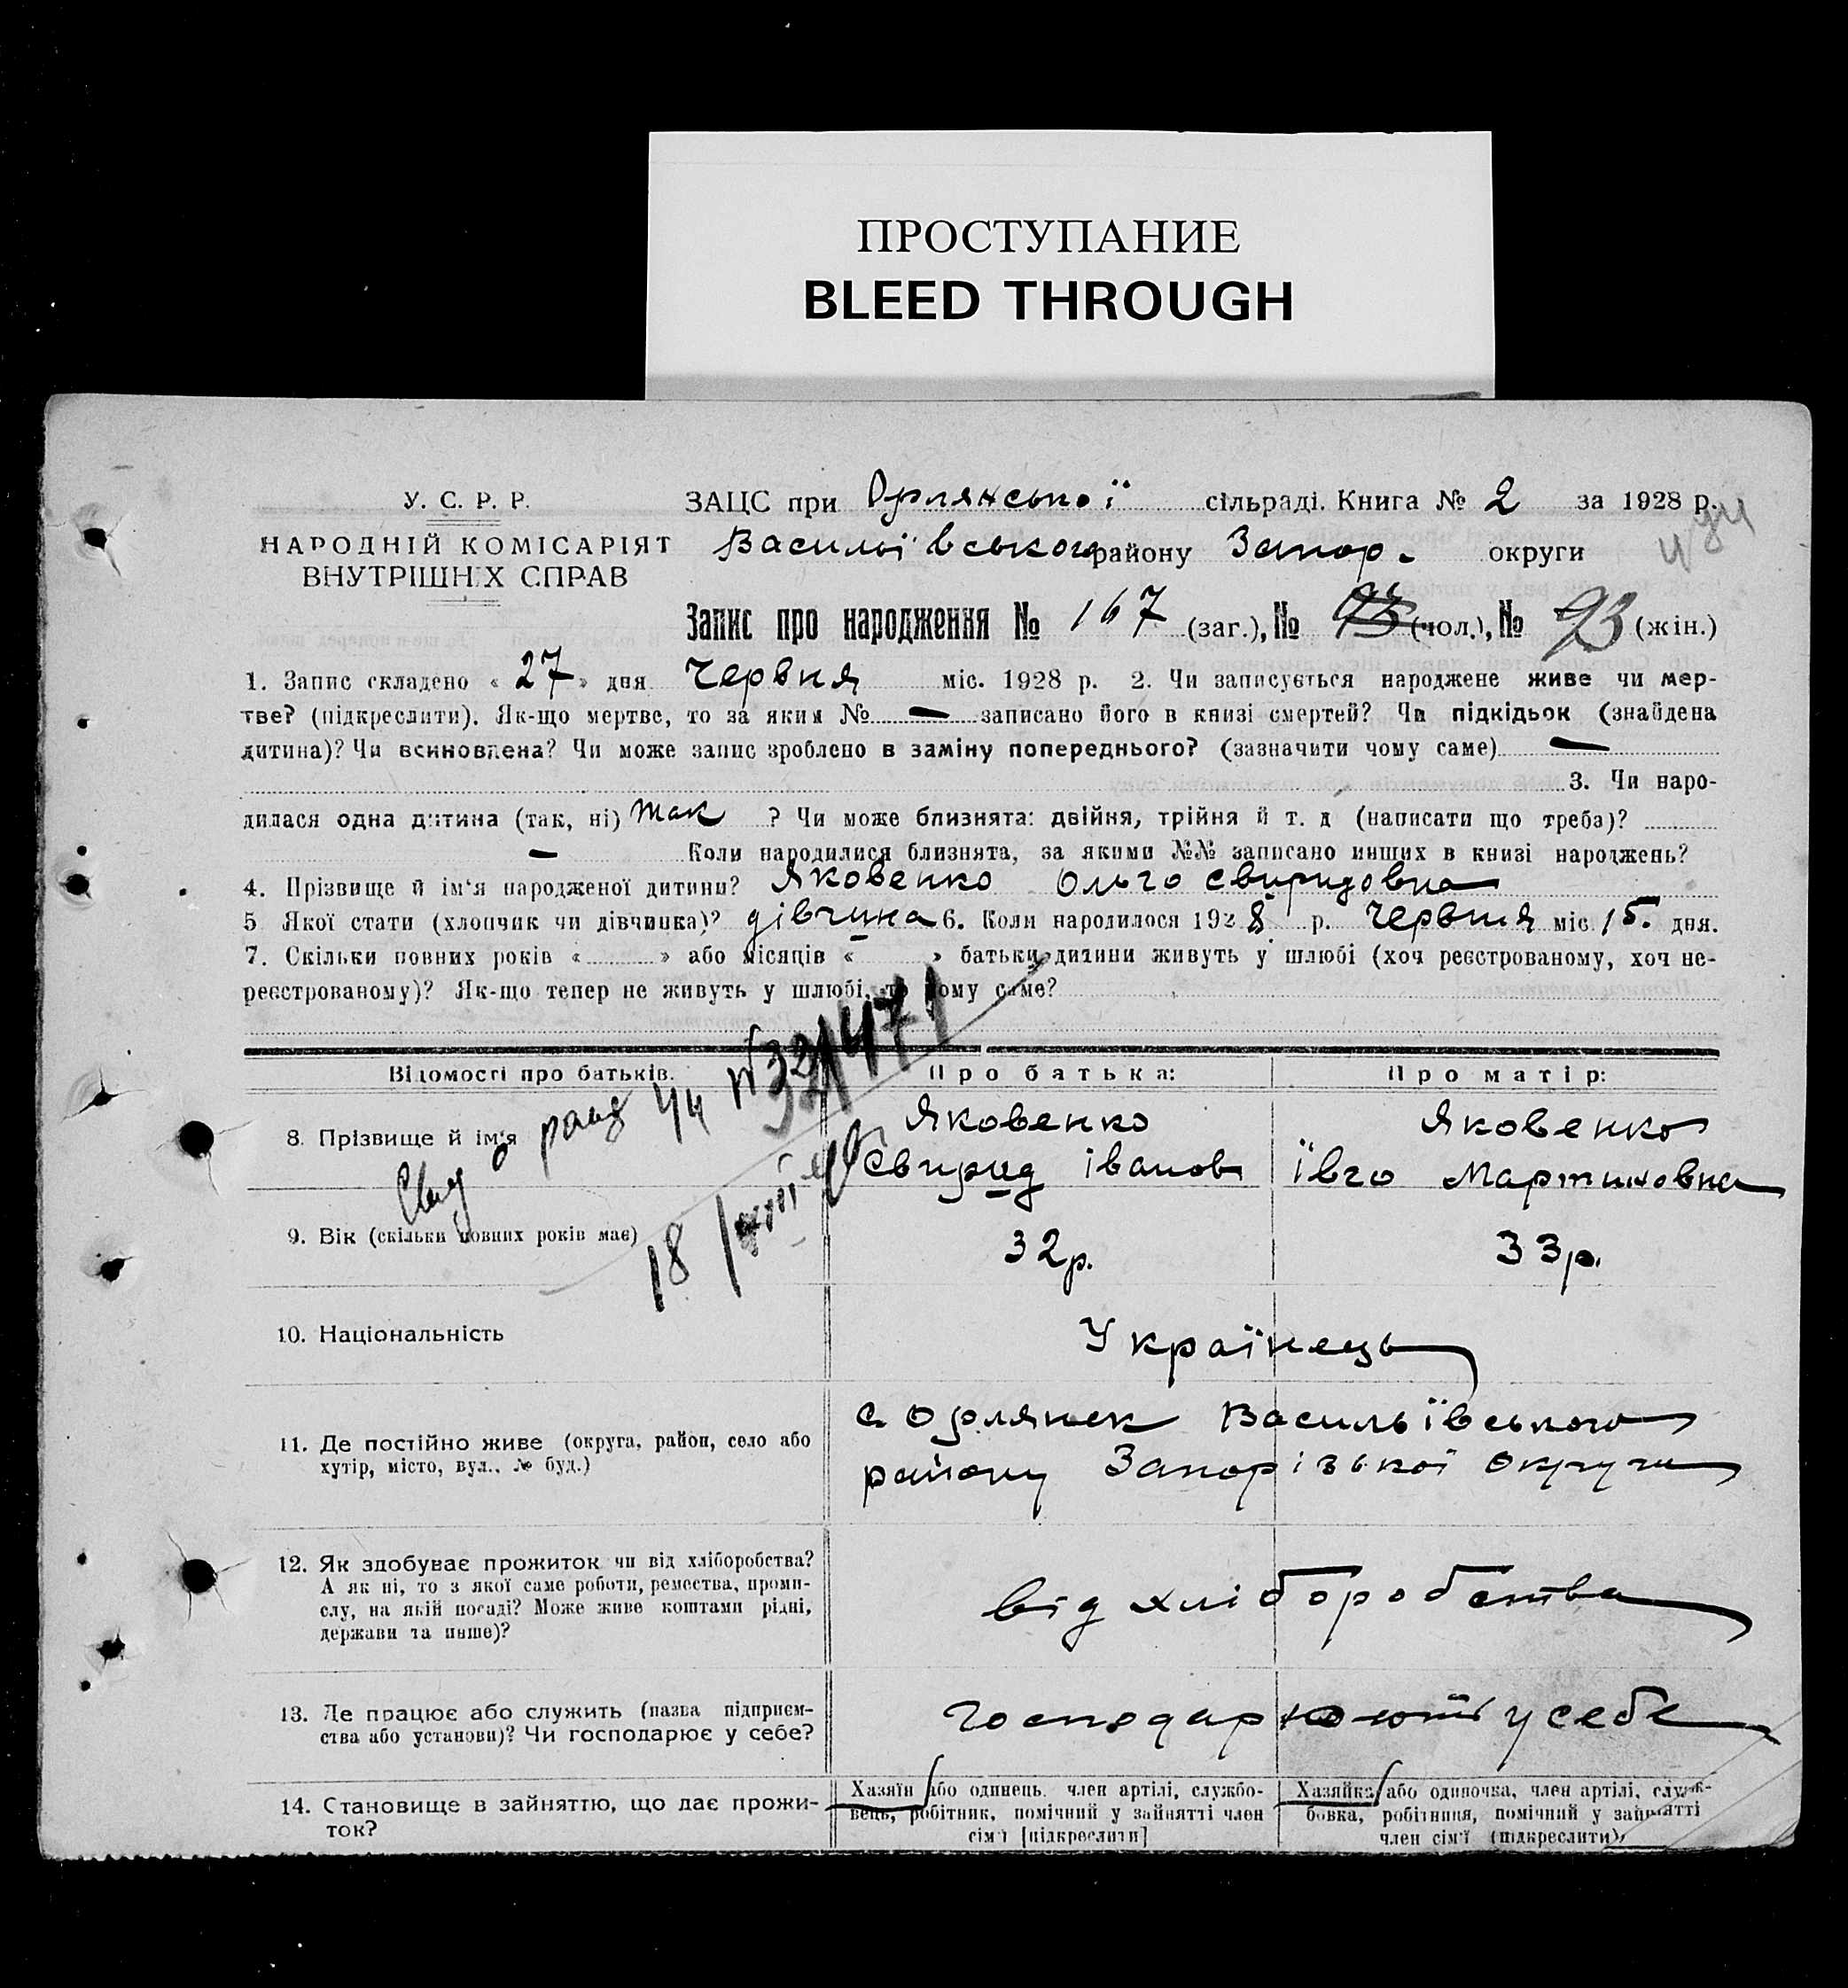 ПРОСТУПАНИЕ
BLEED THROUGH
У. С. Р. Р.
НАРОДНІЙ КОМІСАРІЯТ
ВНУТРІШНІХ СПРАВ
ЗАЦС при Орлянської сільраді. Книга № 2 за 1928 р.
Васильївського району Запор. округи
Запис про народження № 167 (заг.), № 93 (чол.), № 93 (жін.)
1. Запис складено « 27 » дня Червня міс. 1928 р. 2. Чи записується народжене живе чи мер-
тве? (підкреслити). Як-що мертве, то за яким № — записано його в книзі смертей? Чи підкідьок (знайдена
дитина)? Чи всиновлена? Чи може запис зроблено в заміну попереднього? (зазначити чому саме) —
3. Чи наро-
дилася одна дитина (так, ні) так ? Чи може близнята: двійня, трійня й т. д (написати що треба)?
— Коли народилися близнята, за якими №№ записано инших в книзі народжень?
4. Прізвище й ім'я народженої дитини? Яковенко Ольго Свиридовна
5 Якої стати (хлопчик чи дівчинка)? дівчина 6. Коли народилося 1928 р. Червня міс 15. дня.
7. Скільки повних років « » або місяців « » батьки дитини живуть у шлюбі (хоч реєстрованому, хоч не-
реєстрованому)? Як-що тепер не живуть у шлюбі, то чому саме?
Відомості про батьків. Про батька: Про матір:
8. Прізвище й ім'я Яковенко Свирид Іванов Яковенко Ївго Мартиновна
№ 321471
18
9. Вік (скільки повних років має) 32р. 33р.
10. Національність Українець
11. Де постійно живе (округа, район, село або
хутір, місто, вул., № буд.)
с Орлянск Васильївського
району Запорізької Округи
12. Як здобуває прожиток чи від хліборобства?
А як ні, то з якої саме роботи, ремества, проми-
слу, на якій посаді? Може живе коштами рідні,
держави та инше)?
від хліборобства
13. Де працює або служить (назва підприєм-
ства або установи)? Чи господарює у себе?
господарюють у себе
14. Становище в зайняттю, що дає прожи-
ток?
Хазяїн або одинець, член артілі, службо-
вець, робітник, помічний у зайнятті член
сім'ї [підкреслити]
Хазяйка або одиночка, член артілі, служ-
бовка, робітниця, помічний у зайнятті
член сім'ї (підкреслити)